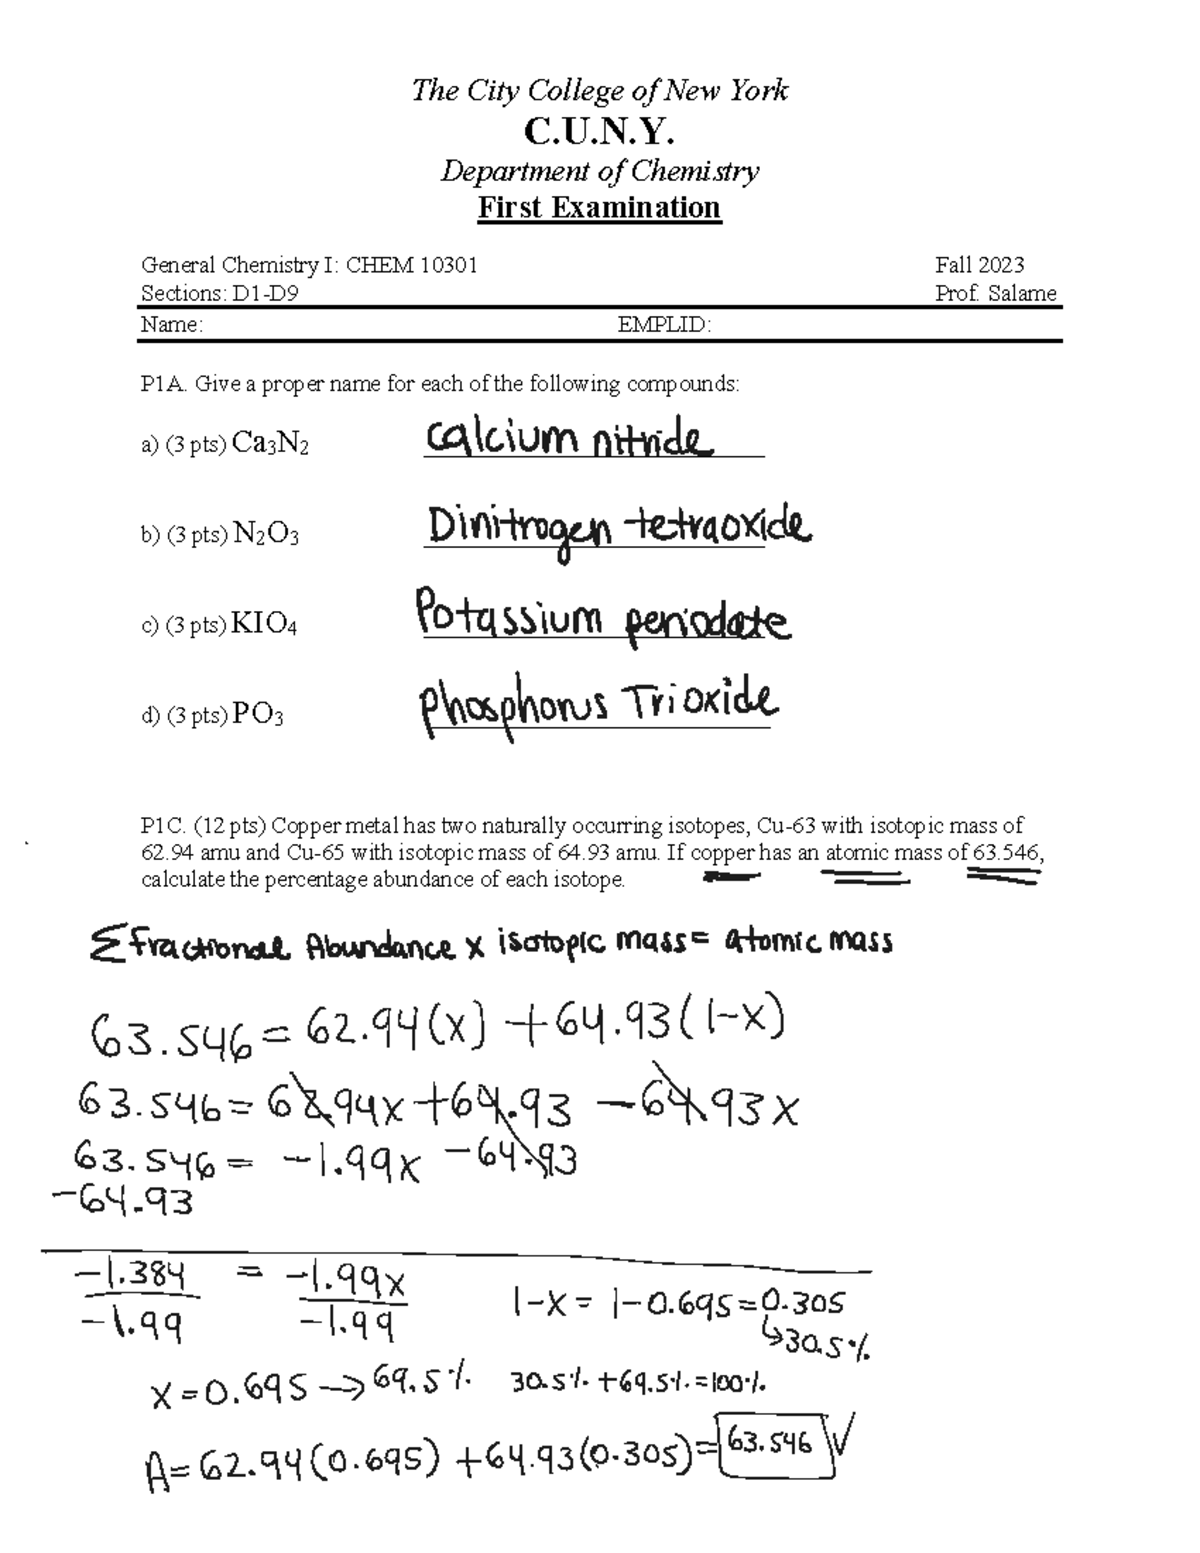 The City College of New York
C.U.N.Y.
Department of Chemistry
First Examination
General Chemistry I: CHEM 10301 Fall 2023
Sections: D1-D9 Prof. Salame
Name: EMPLID:
P1A. Give a proper name for each of the following compounds:
a) (3 pts) Ca3N2 calcium nitride
b) (3 pts) N2O3 Dinitrogen tetraoxide
c) (3 pts) KIO4 Potassium periodate
d) (3 pts) PO3 Phosphorus Trioxide
P1C. (12 pts) Copper metal has two naturally occurring isotopes, Cu-63 with isotopic mass of
62.94 amu and Cu-65 with isotopic mass of 64.93 amu. If copper has an atomic mass of 63.546,
calculate the percentage abundance of each isotope.
Σ fractional Abundance x isotopic mass = atomic mass
63.546 = 62.94(x) + 64.93(1-x)
63.546 = 62.94x + 64.93 - 64.93x
63.546 = -1.99x - 64.93
-64.93
-1.384 = -1.99x
-1.99 -1.99
1-x = 1-0.695 = 0.305
↳30.5%
x = 0.695 → 69.5% 30.5% + 69.5% = 100%
A = 62.94(0.695) + 64.93(0.305) = 63.546 √